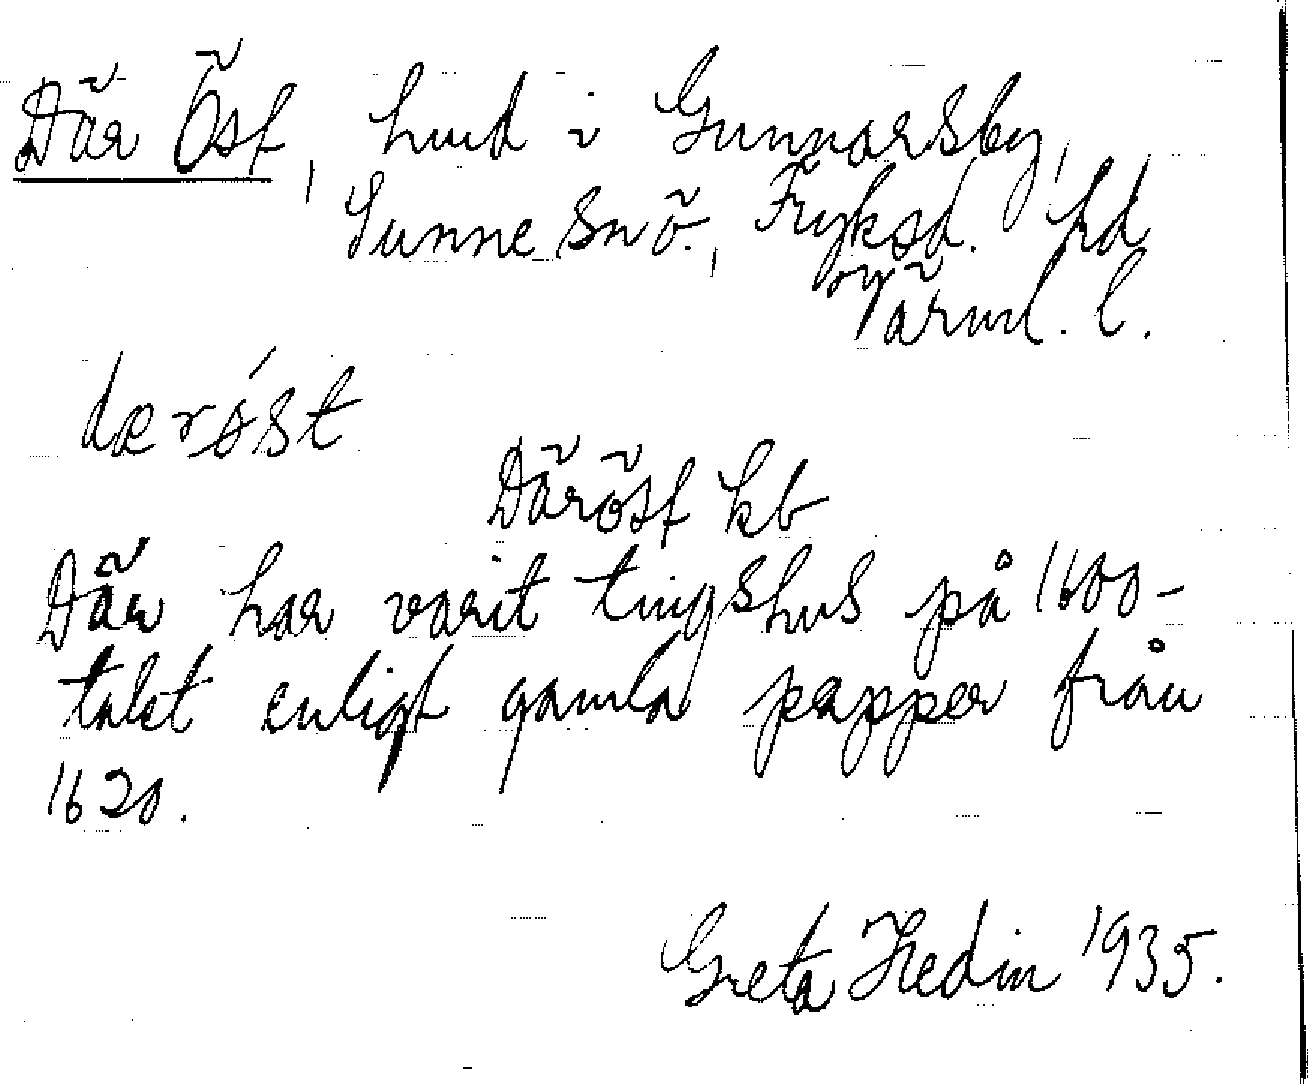 Där Öst, hmd i Gunnarsby,
Sunne snö., Fryksd. hd
Värml. l.
dærǿst
Däröst kb
Där har varit tingshus på 1600-
talet enligt gamla papper från
1620.
Greta Hedin 1935.